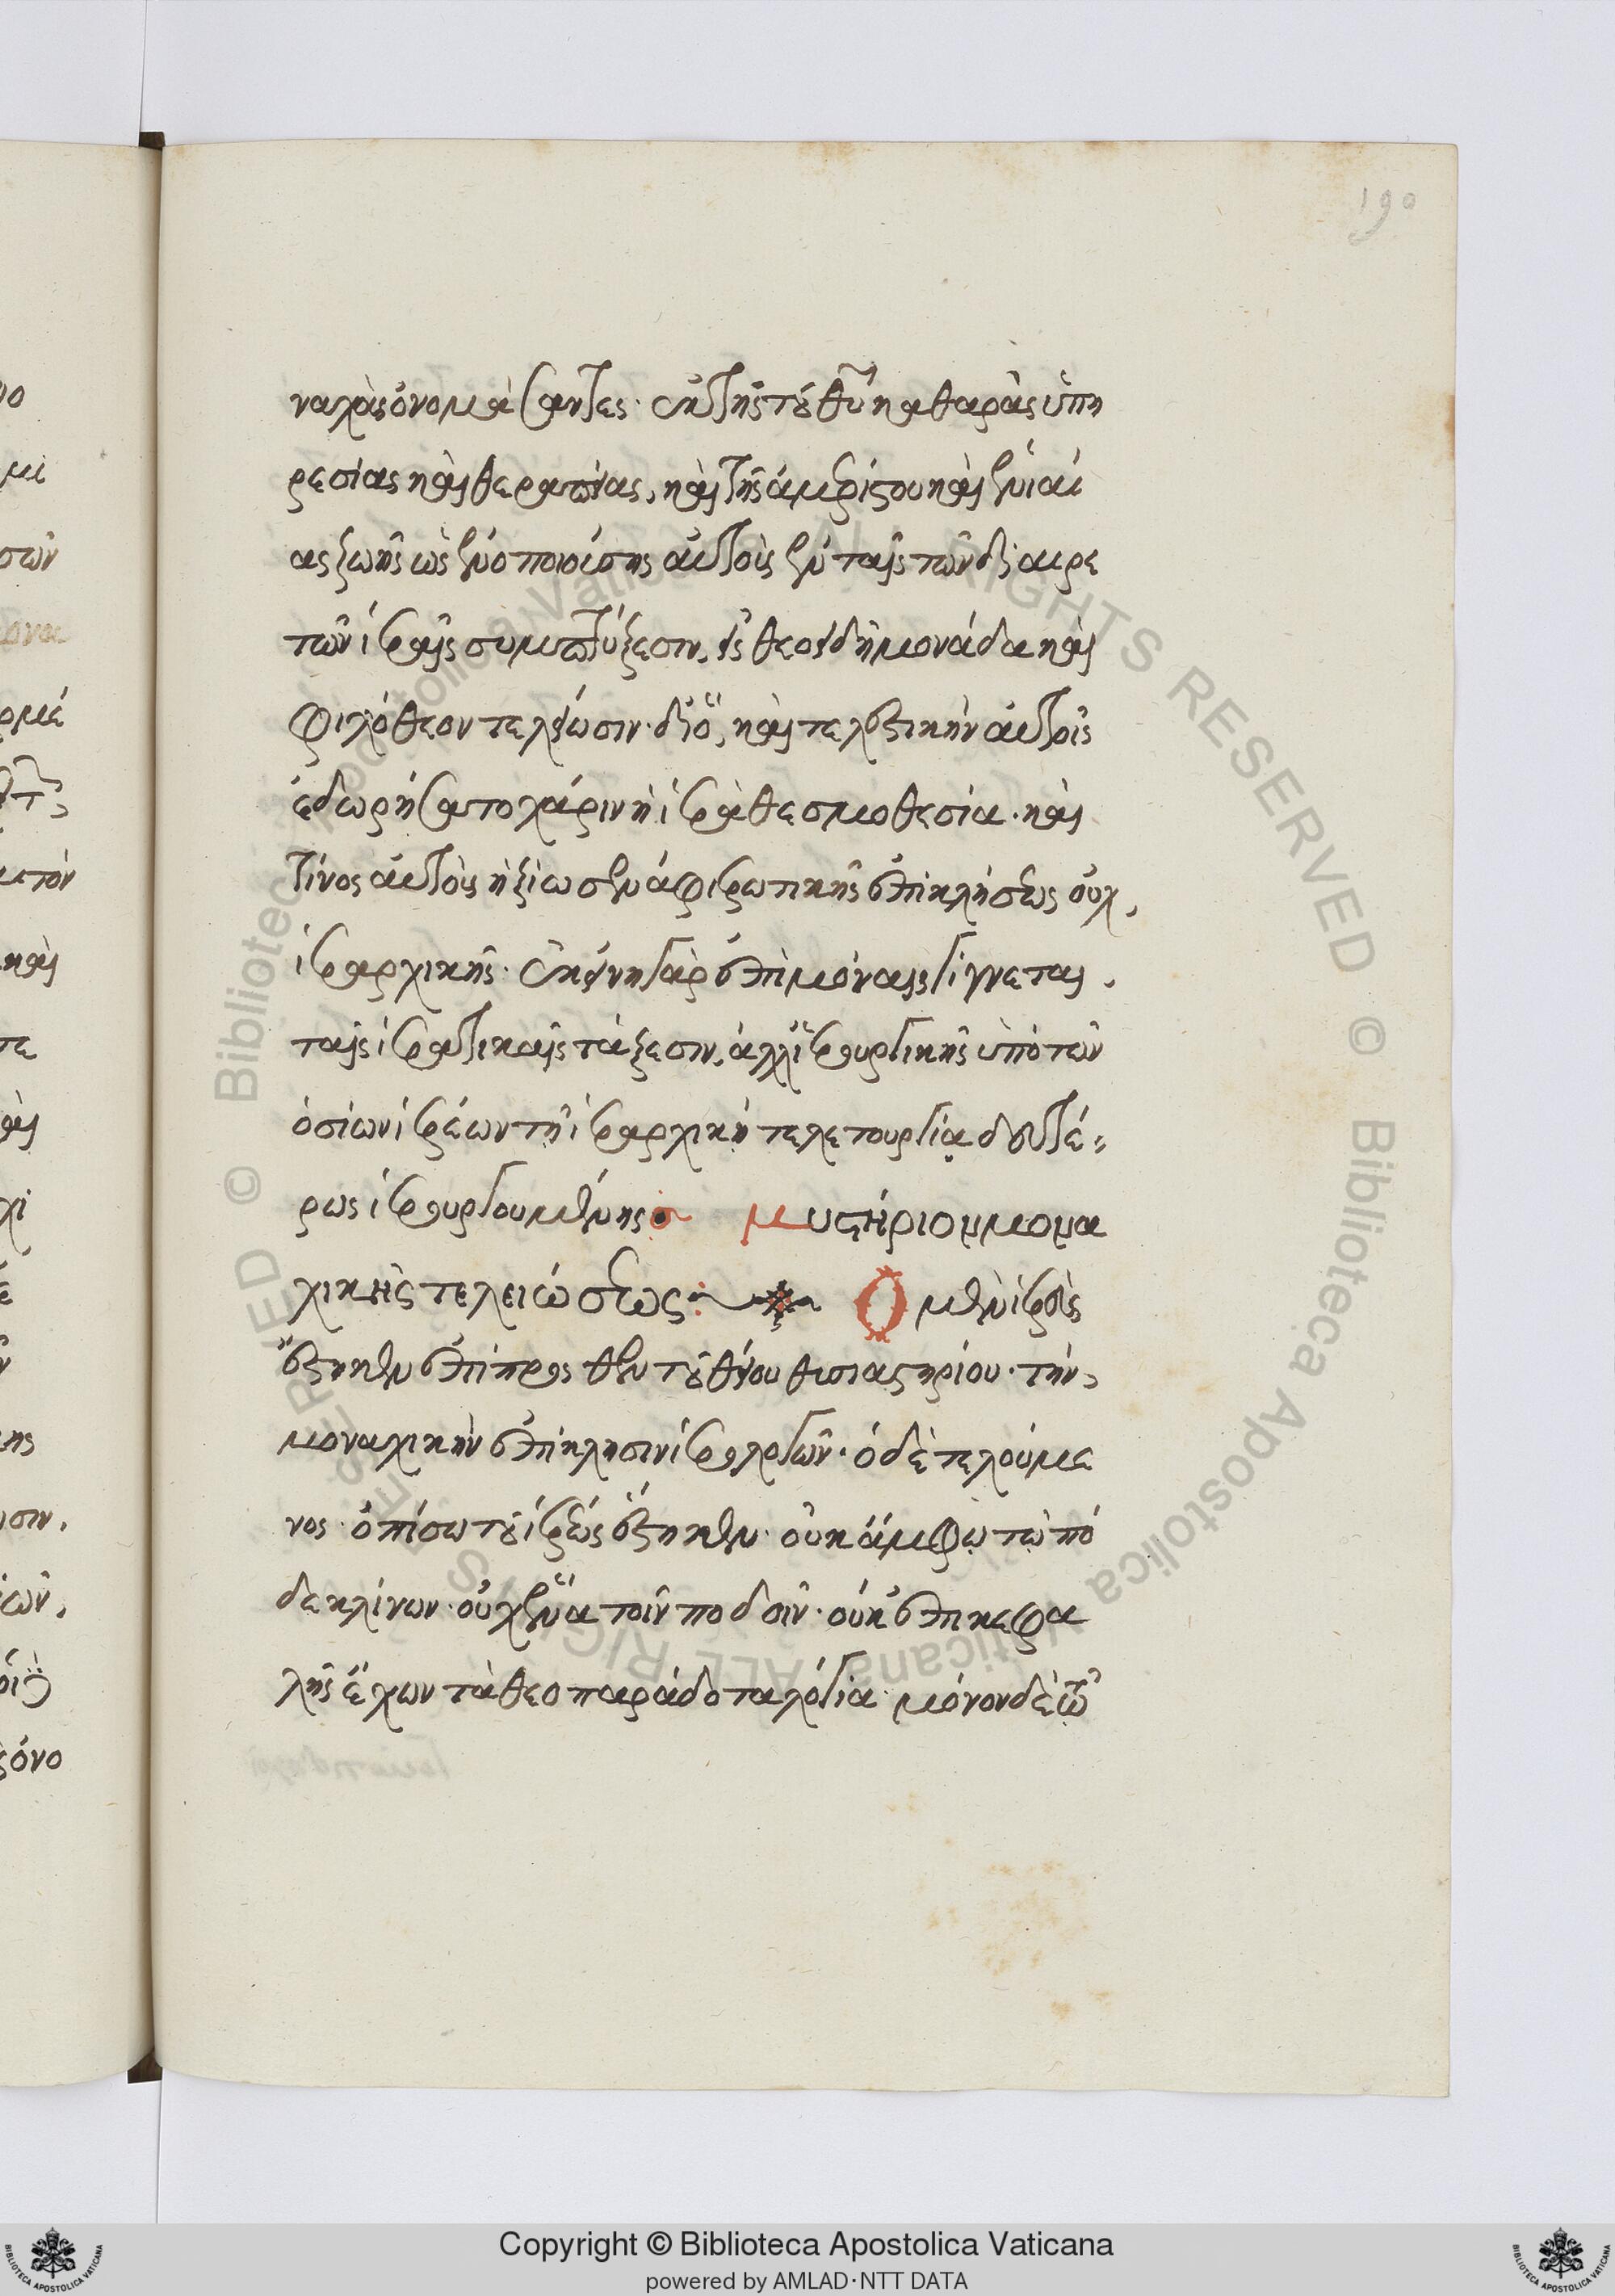 190
ναχοὺς ὀνομάσαντες· ἐκ τῆς τοῦ θυ καθαρᾶς ὑπη
ρεσίας καὶ θεραπείας, καὶ τῆς ἀμερίστου καὶ ἑνιαί
ας ζωῆς ὡς ἑνοποιούσης αὐτοὺς ἐν ταῖς τῶν διαιρε
τῶν ἱεραῖς συμπτύξεσιν, εἰς θεοειδῆ μονάδα καὶ
φιλόθεον τελείωσιν· διὸ, καὶ τελεστικὴν αὐτοῖς
ἐδωρήσατο χάριν ἡ ἱερὰ θεσμοθεσία· καί
τινος αὐτοὺς ἠξίωσεν ἀφιερωτικῆς ἐπικλήσεως οὐχ,
ἱεραρχικῆς· ἐκείνη γὰρ ἐπὶ μόναις γίγνεται,
ταῖς ἱερατικαῖς τάξεσιν, ἀλλ' ἱερουργικῆς ὑπὸ τῶν
ὁσίων ἱερέων τῇ ἱεραρχικῇ τελετουργίᾳ δευτέ
ρως ἱερουργουμένης μυστήριον μονα
χικῆς τελειώσεως: Ὁ μὲν ἱερεὺς
ἕστηκεν ἐπίπροσθεν τοῦ θείου θυσιαστηρίου· τὴν
μοναχικὴν ἐπίκλησιν ἱερολογῶν· ὁ δὲ τελούμε
νος ὀπίσω τοῦ ἱερέως ἕστηκεν· οὐκ ἄμφω τὼ πό
δε κλίνων· οὐχ ἕνα τοῖν ποδοῖν· οὐκ ἐπὶ κεφα
λῆς ἔχων τὰ θεοπαράδοτα λόγια· μόνον δὲ τῷ
Copyright © Biblioteca Apostolica Vaticana
powered by AMLAD·NTT DATA